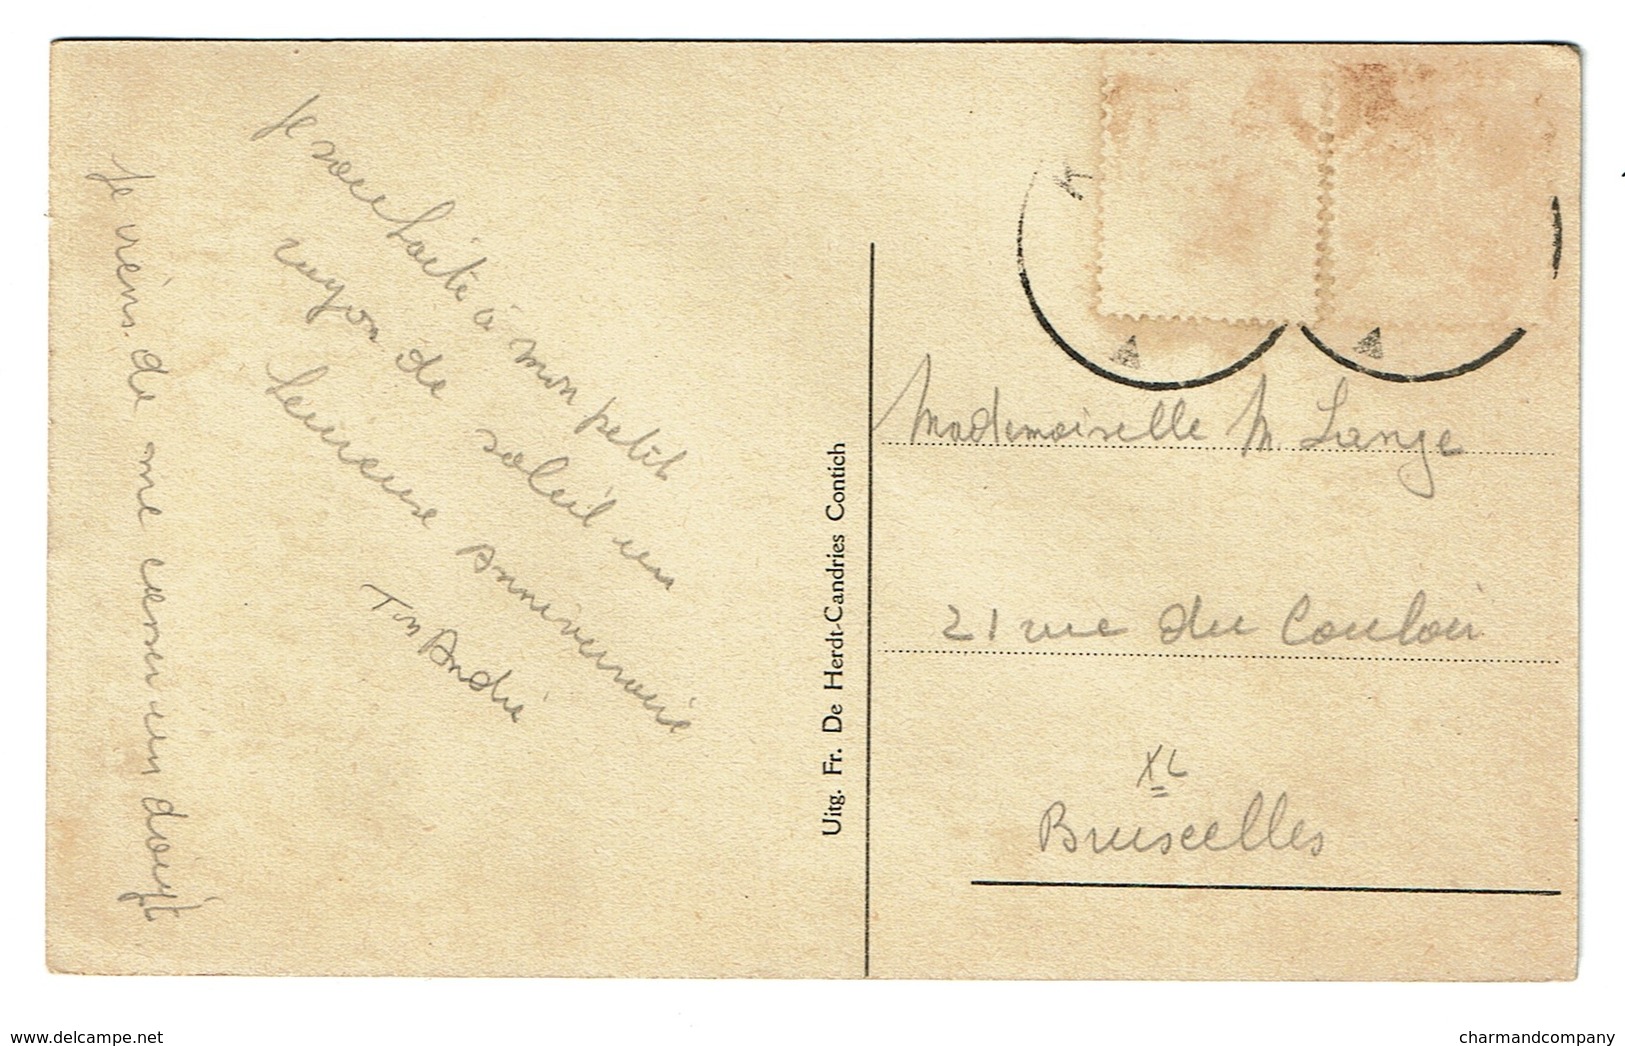 Je souhaite à mon petit
rayon de soleil un
heureuse anniversaire
Ton André
Je viens de me casser un douigt
Uitg. Fr. De Herdt-Candries Contich
K
A
A
Mademoiselle M. Lange
21 rue du Couloir
XL
Bruxelles
www.delcampe.net
charmandcompany